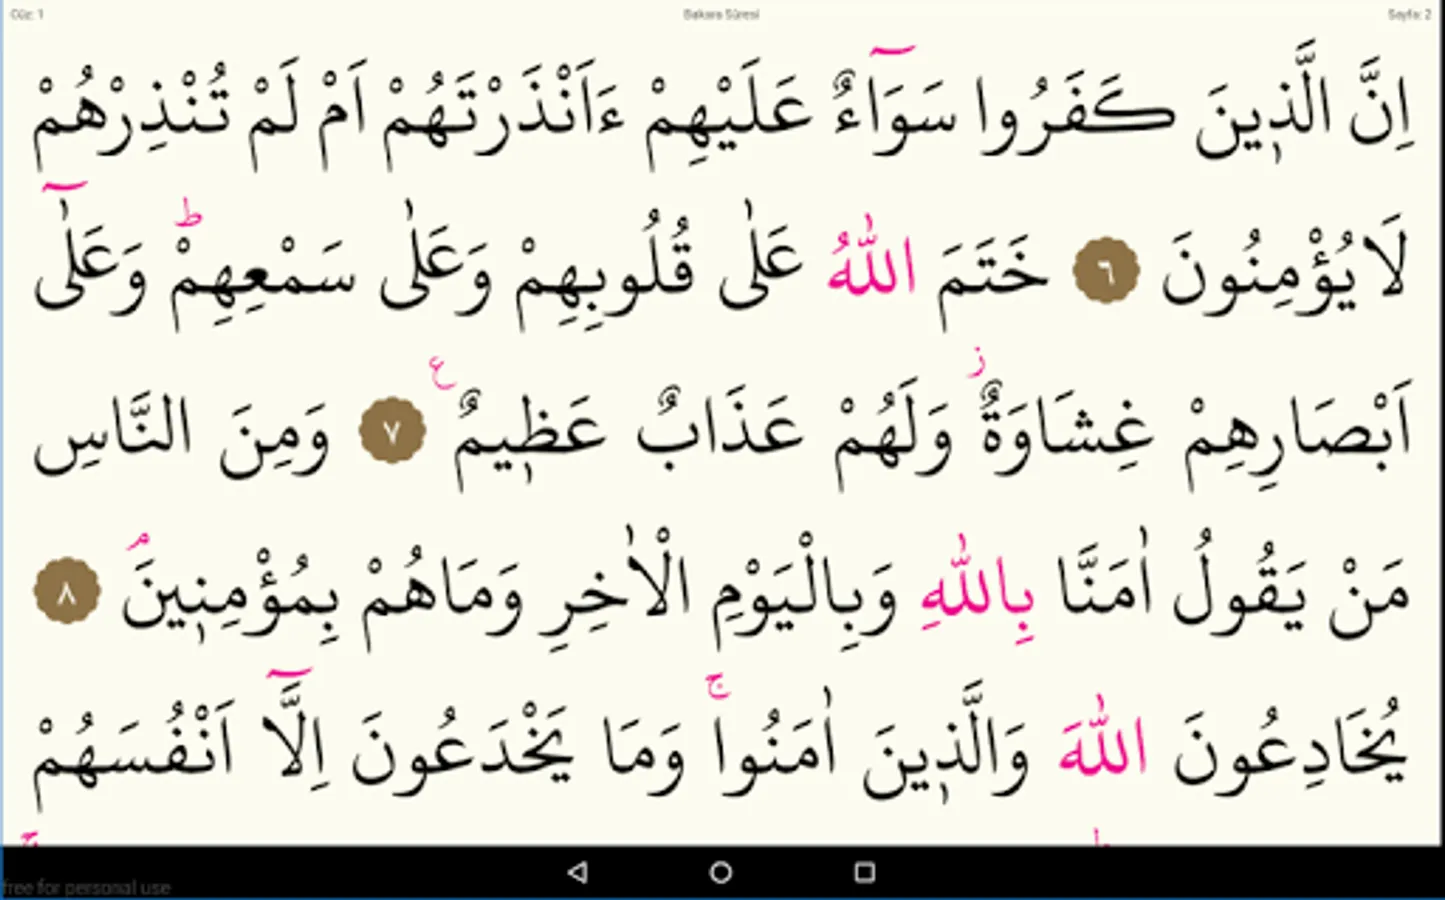 Cüz: 1 Bakara Sûresi Sayfa: 2
اِنَّ الَّذ۪ينَ كَفَرُوا سَوَٓاءٌ عَلَيْهِمْ ءَاَنْذَرْتَهُمْ اَمْ لَمْ تُنْذِرْهُمْ
لَا يُؤْمِنُونَ ٦ خَتَمَ اللّٰهُ عَلٰى قُلُوبِهِمْ وَعَلٰى سَمْعِهِمْۜ وَعَلٰٓى
اَبْصَارِهِمْ غِشَاوَةٌۘ وَلَهُمْ عَذَابٌ عَظ۪يمٌ ع ٧ وَمِنَ النَّاسِ
مَنْ يَقُولُ اٰمَنَّا بِاللّٰهِ وَبِالْيَوْمِ الْاٰخِرِ وَمَا هُمْ بِمُؤْمِن۪ينَۢ ٨
يُخَادِعُونَ اللّٰهَ وَالَّذ۪ينَ اٰمَنُواۚ وَمَا يَخْدَعُونَ اِلَّٓا اَنْفُسَهُمْ
free for personal use